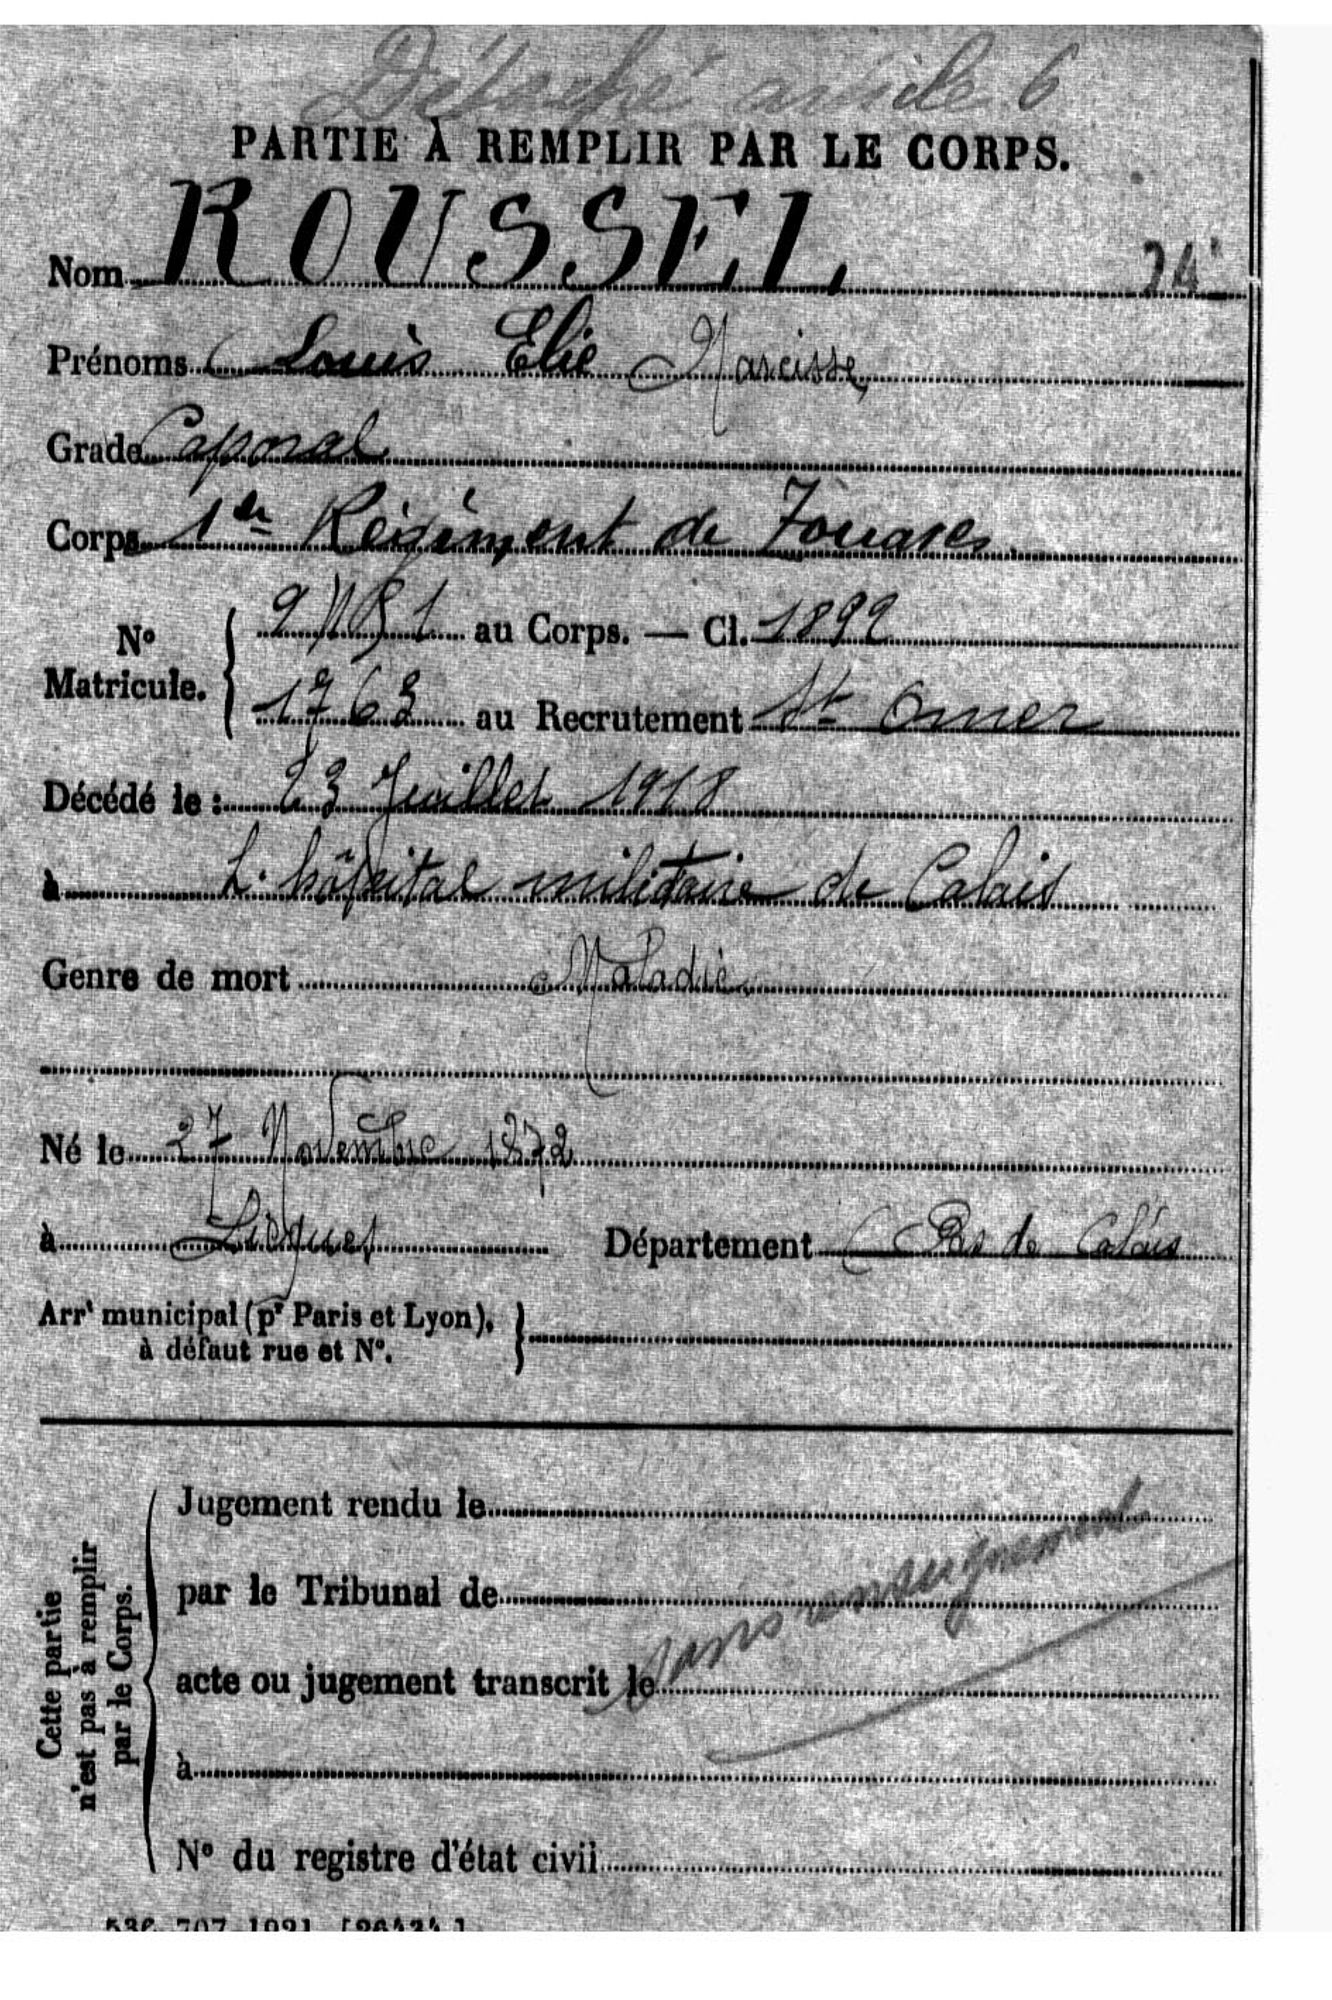 Détaché article 6
PARTIE À REMPLIR PAR LE CORPS.
Nom ROUSSEL
Prénoms Louis Elie Narcisse
Grade Caporal
Corps 1er Régiment de Zouaves
N° Matricule. au Corps. — Cl. 1892
1763 au Recrutement St Omer
Décédé le : 23 Juillet 1918
à L'hôpital militaire de Calais
Genre de mort Maladie
Né le 27 Novembre 1872
à Licques Département Pas de Calais
Arrt municipal (pr Paris et Lyon),
à défaut rue et N°.
Cette partie
n'est pas à remplir
par le Corps.
Jugement rendu le
par le Tribunal de
acte ou jugement transcrit le
sans renseignement
à
N° du registre d'état civil